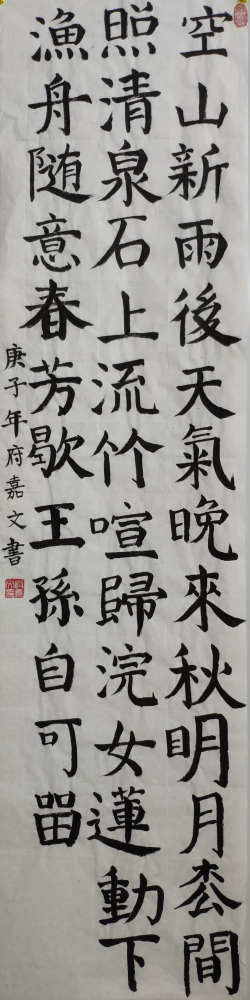 空山新雨後天氣晚來秋明月枩間
照清泉石上流竹喧歸浣女蓮動下
漁舟随意春芳歇王孫自可畱
庚子年府嘉文書